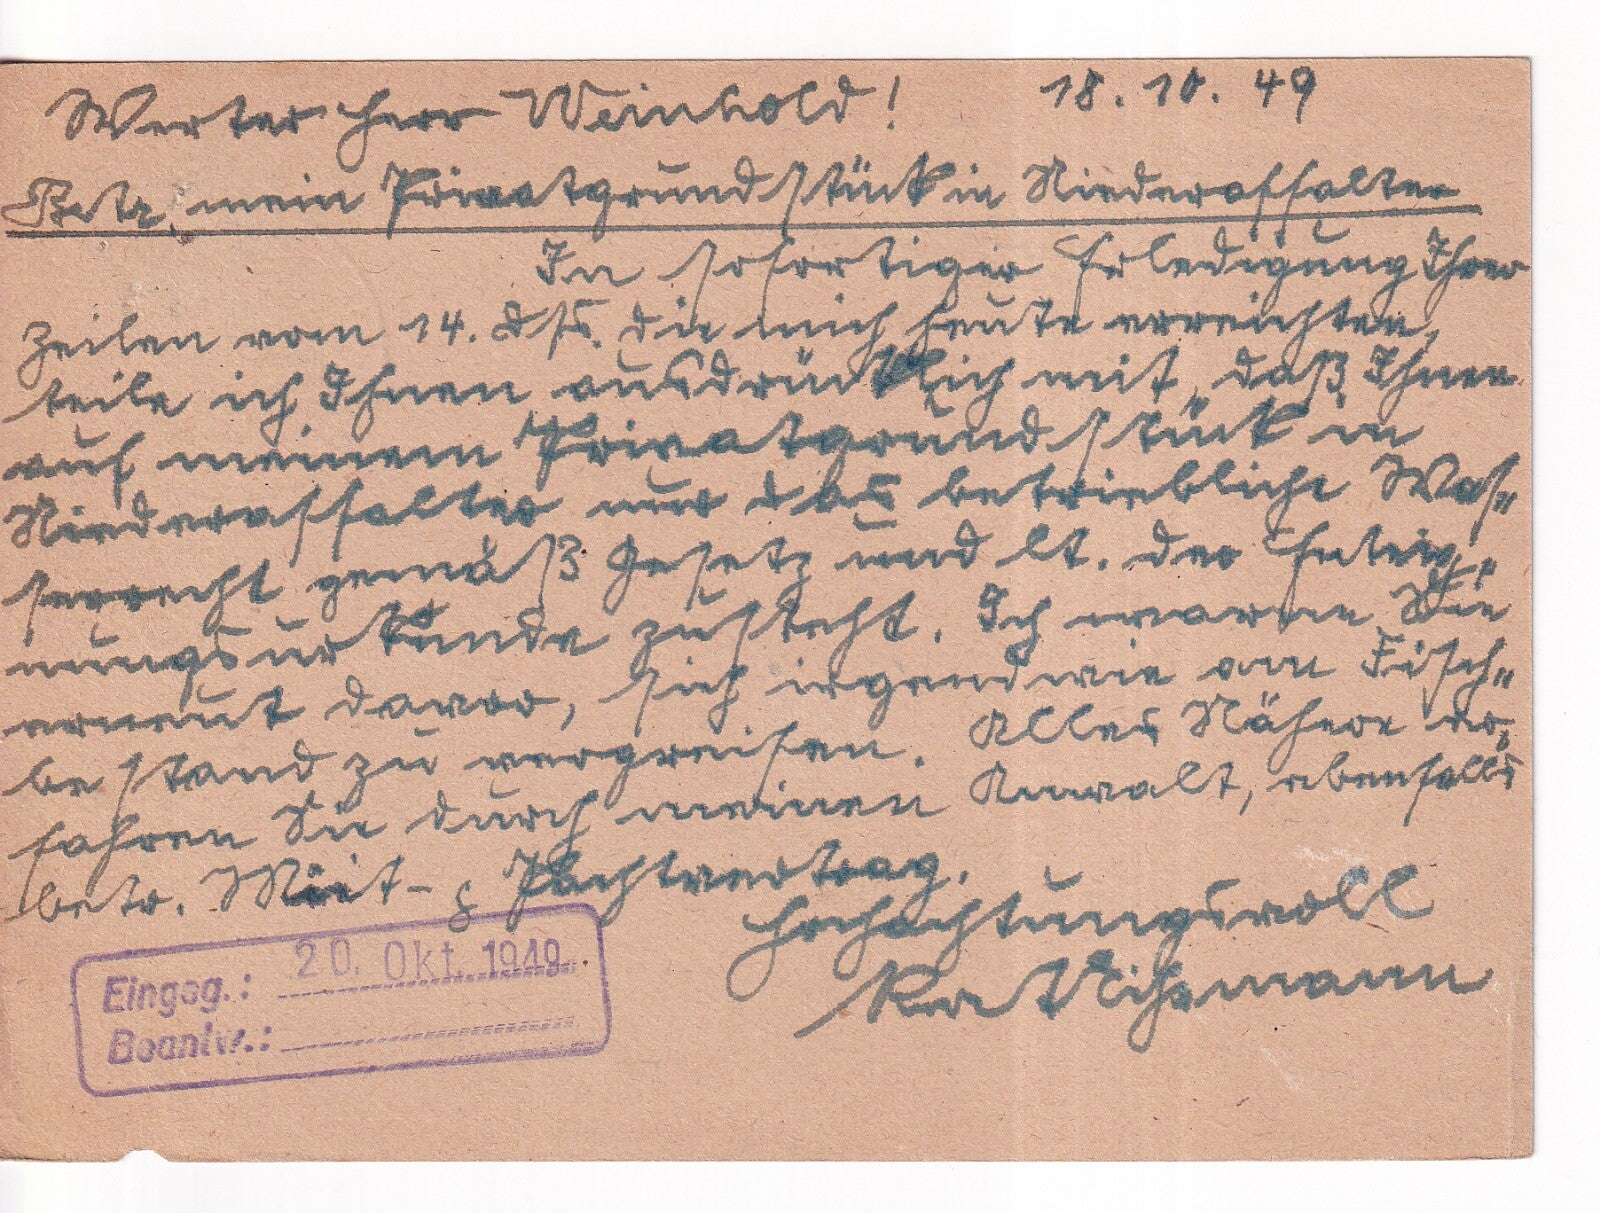 Werter Herr Weinhold! 18. 10. 49
Betr. mein Privatgrundstück in Niederaffalter
In sofortiger Erledigung Ihrer
Zeilen vom 14. ds. die mich heute erreichten,
teile ich Ihnen ausdrücklich mit, daß Ihnen
auf meinem Privatgrundstück in
Niederaffalter nur das betriebliche Was=
serrecht gemäß Gesetz und lt. der Enteig=
nungsurkunde zusteht. Ich warne Sie
erneut davor, sich irgendwie am Fisch=
bestand zu vergreifen. Alles Nähere er=
fahren Sie durch meinen Anwalt, ebenfalls
betr. Miet- & Pachtvertrag.
Hochachtungsvoll
Eingeg.: 20. Okt. 1949
Beantw.: